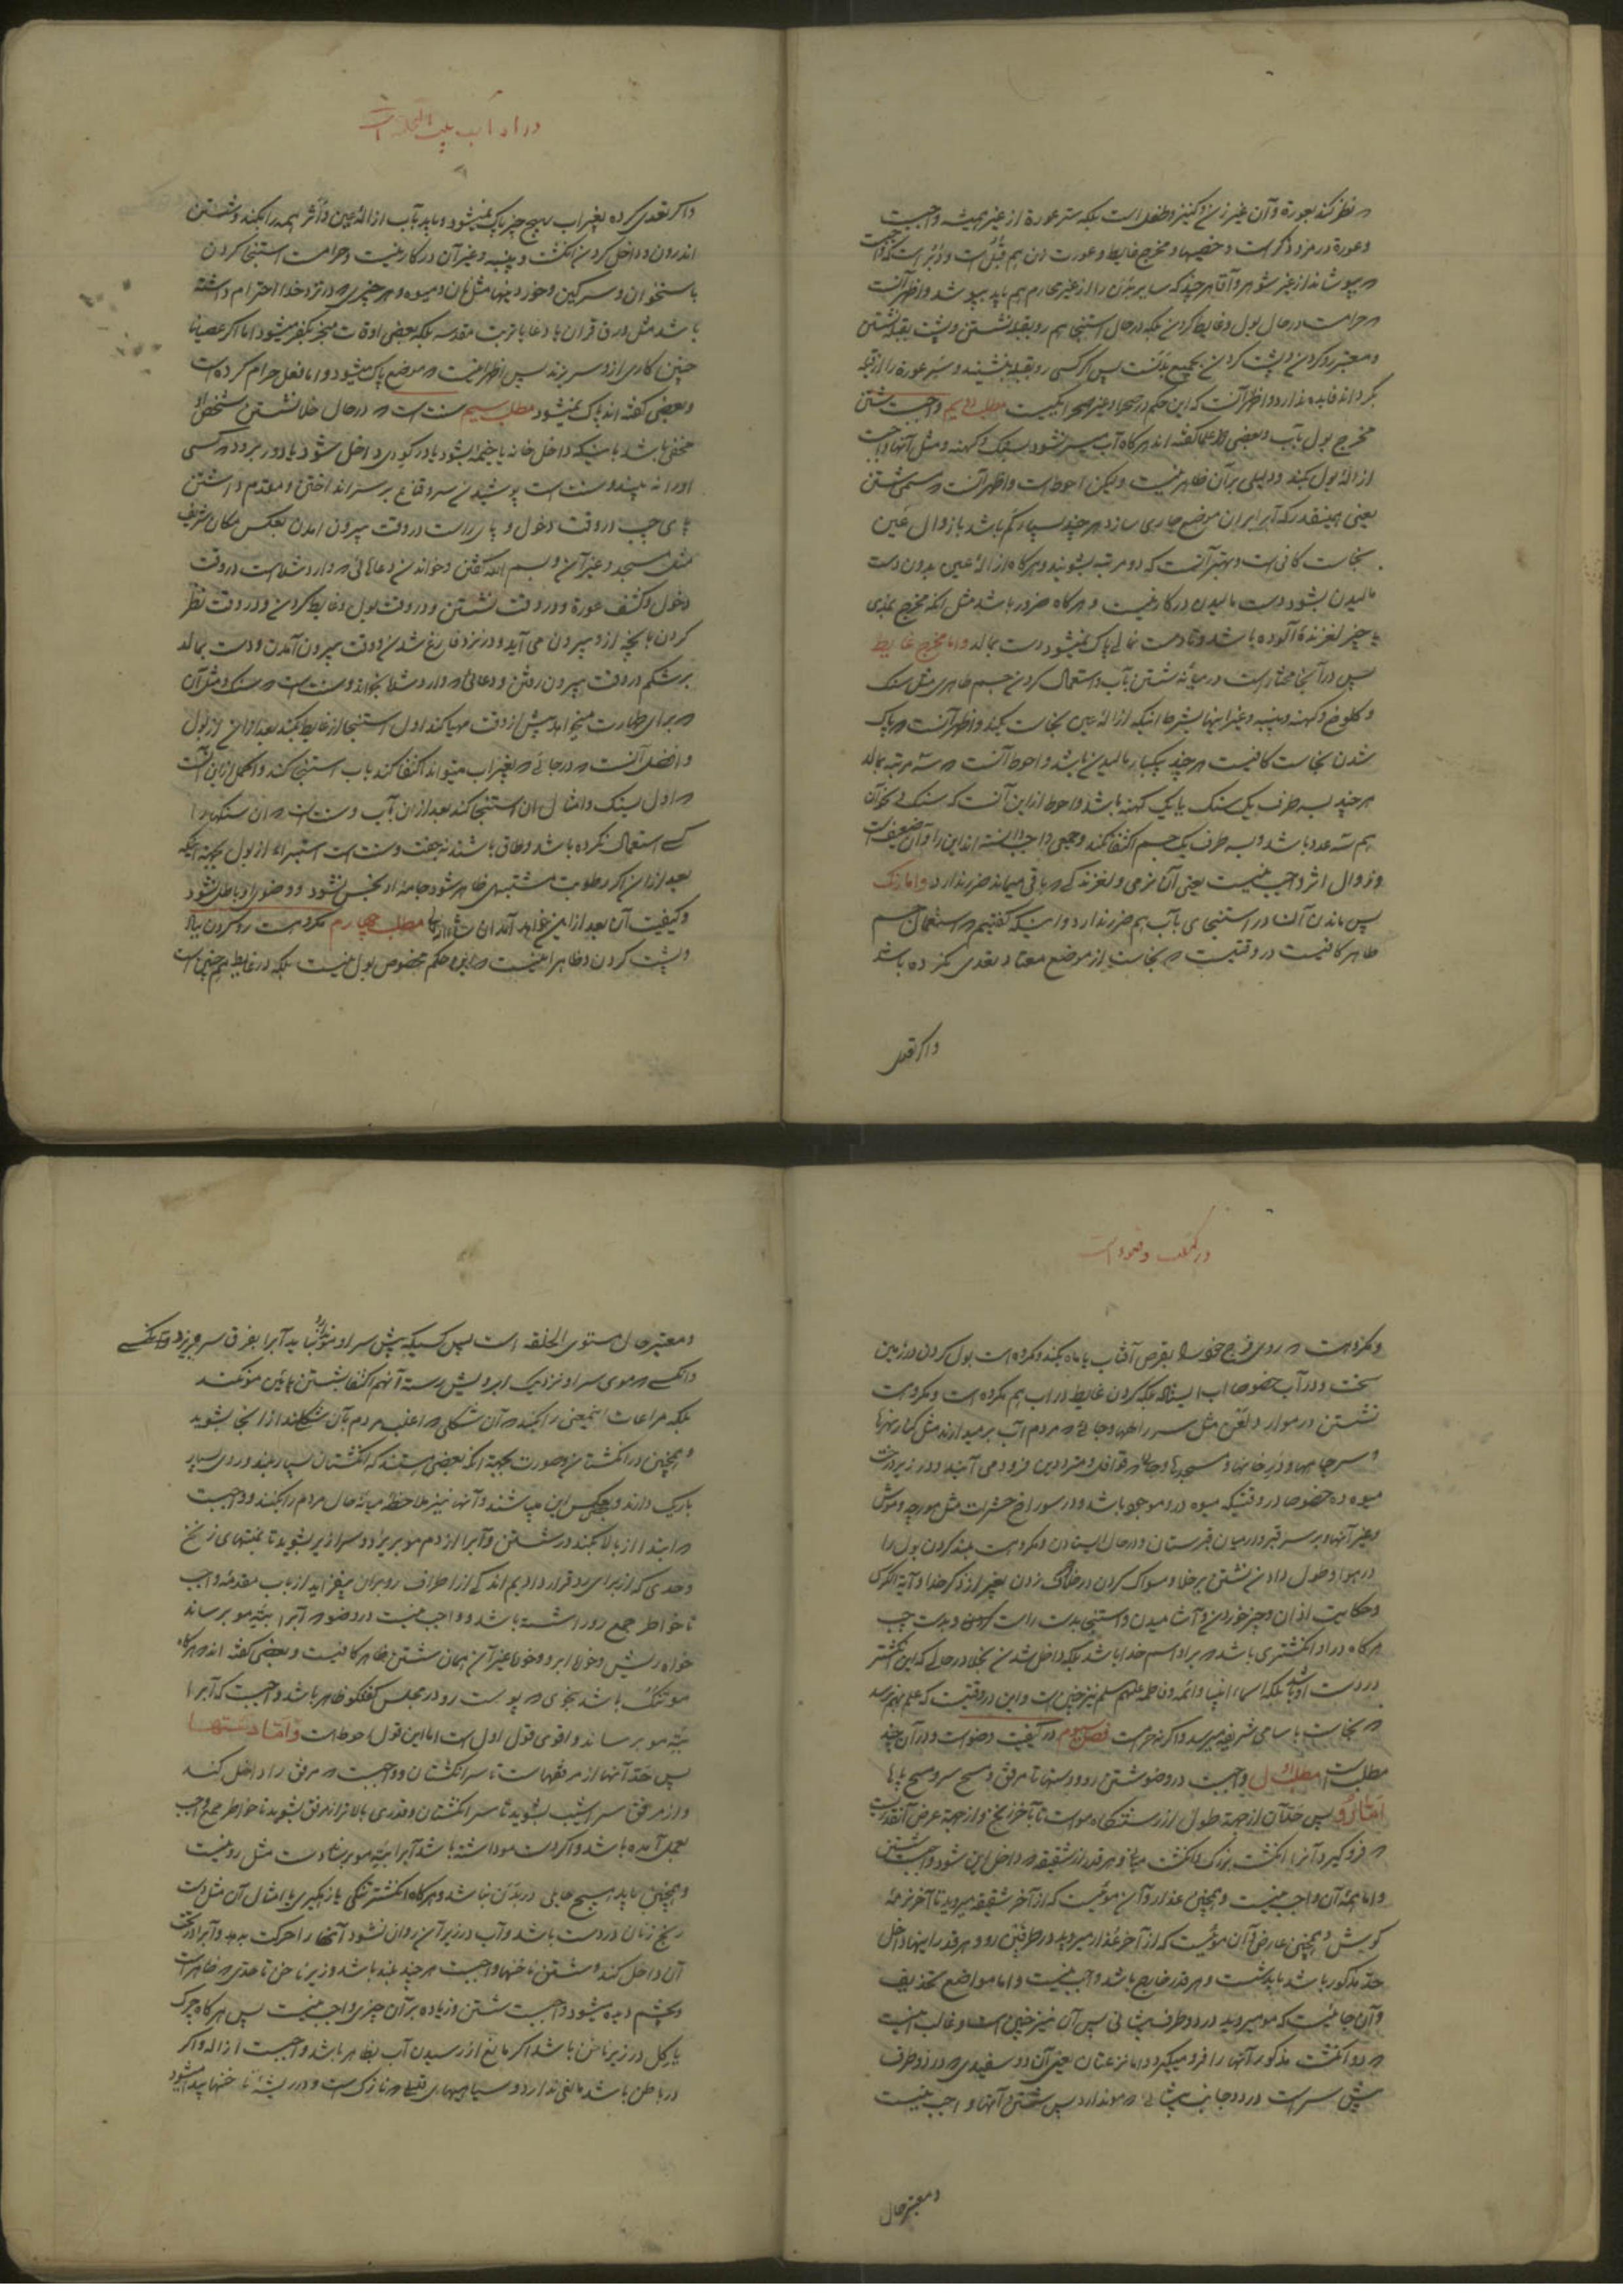 نظر کند بعورة و آن غیر زن و کنیز و طفل است بلکه ستر عورة از غیر همیشه واجبست
و عورة در مرد ذکر است و خصیها و مخرج غایط و عورت زن هم قبل است و دبر است که واجبست
بپوشاند از غیر شوهر و آقا هر چند که سایر بدن را از غیر محارم هم باید بپوشد و اظهر آنست
حرامست در حال بول و غایط کردن بلکه در حال استنجا هم رو بقبله نشستن و پشت بقبله نشستن
و معتبر رو کردن و پشت کردن بجمیع بدنست پس اگر کسی رو بقبله بنشیند و سر عورة را از قبله
بگرداند فایده ندارد و اظهر آنست که این حکم در صحرا و غیر صحرا یکیست مطلب دویم واجبست شستن
مخرج بول بآب و بعضی از علما گفته اند هر گاه آب میسر نشود بسنک و کهنه و مثل آنها واجبست
ازالهٔ بول بکند و دلیلی بر آن ظاهر نیست ولیکن احوط است و اظهر آنست مسمی شستن
یعنی همینقدر که آب بر آن موضع جاری سازد هر چند بسیار کم باشد با زوال عین
نجاست کافی است و بهتر آنست که دو مرتبه بشویند و هر گاه ازالهٔ عین بدون دست
مالیدن بشود دست مالیدن در کار نیست و هر گاه ضرور باشد مثل انکه مخرج بمذی
یا چیز لغزندهٔ آلوده باشد و تا دست نمالی پاک نمیشود دست بمالد و اما مخرج غایط
پس در آنجا مختار است در میانهٔ شستن بآب و استعمال کردن جسم طاهری مثل سنک
و کلوخ و کهنه و پنبه و غیر اینها بشرط اینکه ازالهٔ عین نجاست بکند و اظهر آنست پاک
شدن نجاست کافیست هر چند بیکبار مالیدن باشد و احوط آنست سه مرتبه بمالد
هر چند بسه طرف یک سنک یا یک کهنه باشد و احوط از این آنست که سنک و نحو آن
هم سه عدد باشد و بسه طرف یک جسم اکتفا نکند و جمعی واجب دانسته اند این را و آن ضعیف است
و زوال اثر واجب نیست یعنی آن نرمی و لغزندگی باقی میماند ضرر ندارد و اما رنک
پس ماندن آن در استنجای بآب هم ضرر ندارد و اینکه گفتیم استعمال جسم
طاهر کافیست در وقتیست نجاست از موضع معتاد تعدی نکرده باشد
و اگر تعدی
در اداب بیت التخلیه است
و اگر تعدی کرده بغیر اب بهیچ چیز پاک نمیشود و باید بآب ازالهٔ عین و اثر همه را بکند و شستن
اندرون و داخل کردن انکشت و پنبه و غیر آن در کار نیست و حرامست استنجا کردن
باستخوان و سرکین و خوردنیها مثل نان و میوه و هر چیزی در نزد خدا احترام داشته
باشد مثل ورق قران یا دعا یا تربت مقدسه بلکه بعضی اوقات منجر بکفر میشود اما اگر عصیانا
چنین کاری از او سر بزند پس اظهر اینست موضع پاک میشود و اما فعل حرام کرده است
و بعضی گفته اند پاک نمیشود مطلب سیم سنت است در حال خلا نشستن شخص
مخفی باشد باینکه داخل خانه یا خیمه بشود یا در گودی داخل شود یا دور برود کسی
او را نه بیند و سنت است پوشیدن سر و قناع بر سر انداختن و مقدم داشتن
پای چپ در وقت دخول و پای راست در وقت بیرون امدن بعکس مکان شریف
مثل مسجد و غیر آن و بسم الله گفتن و خواندن دعاهائی وارد شده است در وقت
دخول و کشف عورة و در وقت نشستن و در وقت بول و غایط کردن و در وقت نظر
کردن بانچه از او بیرون می آید و در نزد فارغ شدن و وقت بیرون آمدن و دست بمالد
بر شکم در وقت بیرون رفتن و دعائی وارد شده بخواند و سنت است سنک و مثل آن
برای طهارت میخواهد پیش از وقت مهیا کند اول استنجا از غایط بکند بعد از ان از بول
و افضل آنست در جائی بغیر اب میتواند اکتفا کند باب استنجا کند و اکمل از این آنست
اول بسنک و امثال ان استنجا کند بعد از ان بآب و سنت است ان سنکها را
کسی استعمال نکرده باشد و طاق باشند نه جفت و سنت است استبراء از بول بجهة اینکه
بعد از ان اگر رطوبت مشتبهی ظاهر شود جامهٔ او نجس نشود و وضوی او باطل نشود
و کیفیت آن بعد از این خواهد آمد ان شاء الله مطلب چهارم مکروهست رو کردن بباد
و پشت کردن و ظاهر اینست این حکم مخصوص بول نیست بلکه در غایط هم چنین است
در کیفیت وضوء است
و مکروهست روی فرج خود را بقرص آفتاب یا ماه بکند و مکروه است بول کردن در زمین
سخت و در آب خصوصا اب ایستاده بلکه کردن غایط در اب هم مکروه است و مکروهست
نشستن در موارد لعن مثل سر راهها و جائی مردم آب بر میدارند مثل کنار نهرها
و سر چاهها و در خانها و مسجدها و جای قوافل و مترددین فرود می آیند و در زیر درخت
میوه ده خصوصا در وقتیکه میوه در او موجود باشد و در سوراخ حشرات مثل مورچه و موش
و غیر آنها و بر سر قبر و در میان قبرستان و در حال ایستادن و مکروهست بلند کردن بول را
در هوا و طول دادن نشستن بر خلا و مسواک کردن در خلا و حرف زدن بغیر از ذکر خدا و آیة الکرسی
و حکایت اذان و چیز خوردن و آشامیدن و استنجا بدست راست کردن و بدست چپ
هر گاه در او انگشتری باشد بر او اسم خدا باشد بلکه داخل شدن بخلا در حالی که این انگشتر
در دست او باشد بلکه اسماء انبیا و ائمه و فاطمه علیهم سلم نیز چنین است و این در وقتیست که علم بهم نرسد
نجاست باسامی شریفه میرسد و اگر نه حرمست فصل سوم در کیفیت وضو است و در آن چند
مطلب است مطلب اول واجبست در وضو شستن رو و دستها تا مرفق و مسح سر و مسح پاها
اما رو پس حد آن از جهة طول از رستنگاه مو است تا بآخر زنخ و از جهة عرض آنقدریست
فرو گیرد آنرا انگشت بزرگ و انگشت میان و هر قدر از شقیقه داخل این شود واجبست شستن
و اما همهٔ آن واجب نیست و همچنین عذار و آن موئیست که از آخر شقیقه میروید تا آخر نرمهٔ
گوش و همچنین عارض و آن موئیست که از آخر عذار میروید در طرفین رو و هر قدر اینها داخل
حد مذکور باشد باید شست و هر قدر خارج باشد واجب نیست و اما مواضع تحذیف
و آن جائیست که مو میروید در دو طرف پیشانی پس آن نیز چنین است و غالب اینست
دو انگشت مذکور آنها را فرو میگیرد و اما نزعتان یعنی آن دو سفیدی در دو طرف
پیش سر است در دو جانب پیشانی مو ندارد پس شستن آنها واجب نیست
و معتبر حال
و معتبر حال مستوی الخلقه است پس کسیکه پیش سر او مو ندارد نباید آبرا بفرق سر بریزد
و انکسی موی سر او نزدیک ابرویش رسته آنهم اکتفا بشستن پائین مو نکند
بلکه مراعات اینمعنی را بکند آن شکلی اغلب مردم بآن شکلند از انجا بشوید
و همچنین در انگشتان و صورت بجهة انکه بعضی هستند که انگشتان بسیار بلند و روی بسیار
باریک دارند و بعکس این میباشند و آنها نیز ملاحظهٔ میانهٔ حال مردم را بکنند و واجبست
ابتدا از بالا بکند در شستن و آبرا از دم مو بریزد و سرازیر بشوید تا بمنتهای زنخ
و حدی که از برای رو قرار دادیم اندکی از اطراف رو بر ان بیفزاید از باب مقدمهٔ واجب
تا خواطر جمع رو را شسته باشد و واجب نیست در وضو آبرا به ته مو برساند
خواه ریش و خواه ابرو و خواه غیر آن همان شستن ظاهر کافیست و بعضی گفته اند هر گاه
مو تنک باشد بنحوی پوست رو در مجلس گفتگو ظاهر باشد واجبست که آبرا
بته مو برساند و اقوی قول اول است اما این قول احوط است و اما دستها
پس حد آنها از مرفقهاست تا سر انگشتان و واجبست مرفق را داخل کند
و از مرفق سراشیب بشوید تا سر انگشتان و قدری بالاتر از مرفق بشوید تا خواطر جمع واجب
بعمل آمده باشد و اگر دست مو داشته باشد آبرا بته مو برساند دست مثل رو نیست
و همچنین باید هیچ حایلی در بدن نباشد و هر گاه انگشتر تنکی یا زهگیری یا امثال آن مثل دست
رنج زنان در دست باشد و آب در زیر آن روان نشود آنها را حرکت بدهد و آبرا در تحت
آن داخل کند و شستن ناخنها واجبست هر چند بلند باشد و زیر ناخن تا حدی ظاهر است
و بچشم دیده میشود واجبست شستن و زیاده بر آن چیزی واجب نیست پس هر گاه چرک
یا گل در زیر ناخن باشد اگر مانع از رسیدن آب بظاهر باشد واجبست ازاله و اگر
در باطن باشد مانعی ندارد و سیاهیهای نازک است و در ریشهٔ ناخنها پیدا میشود